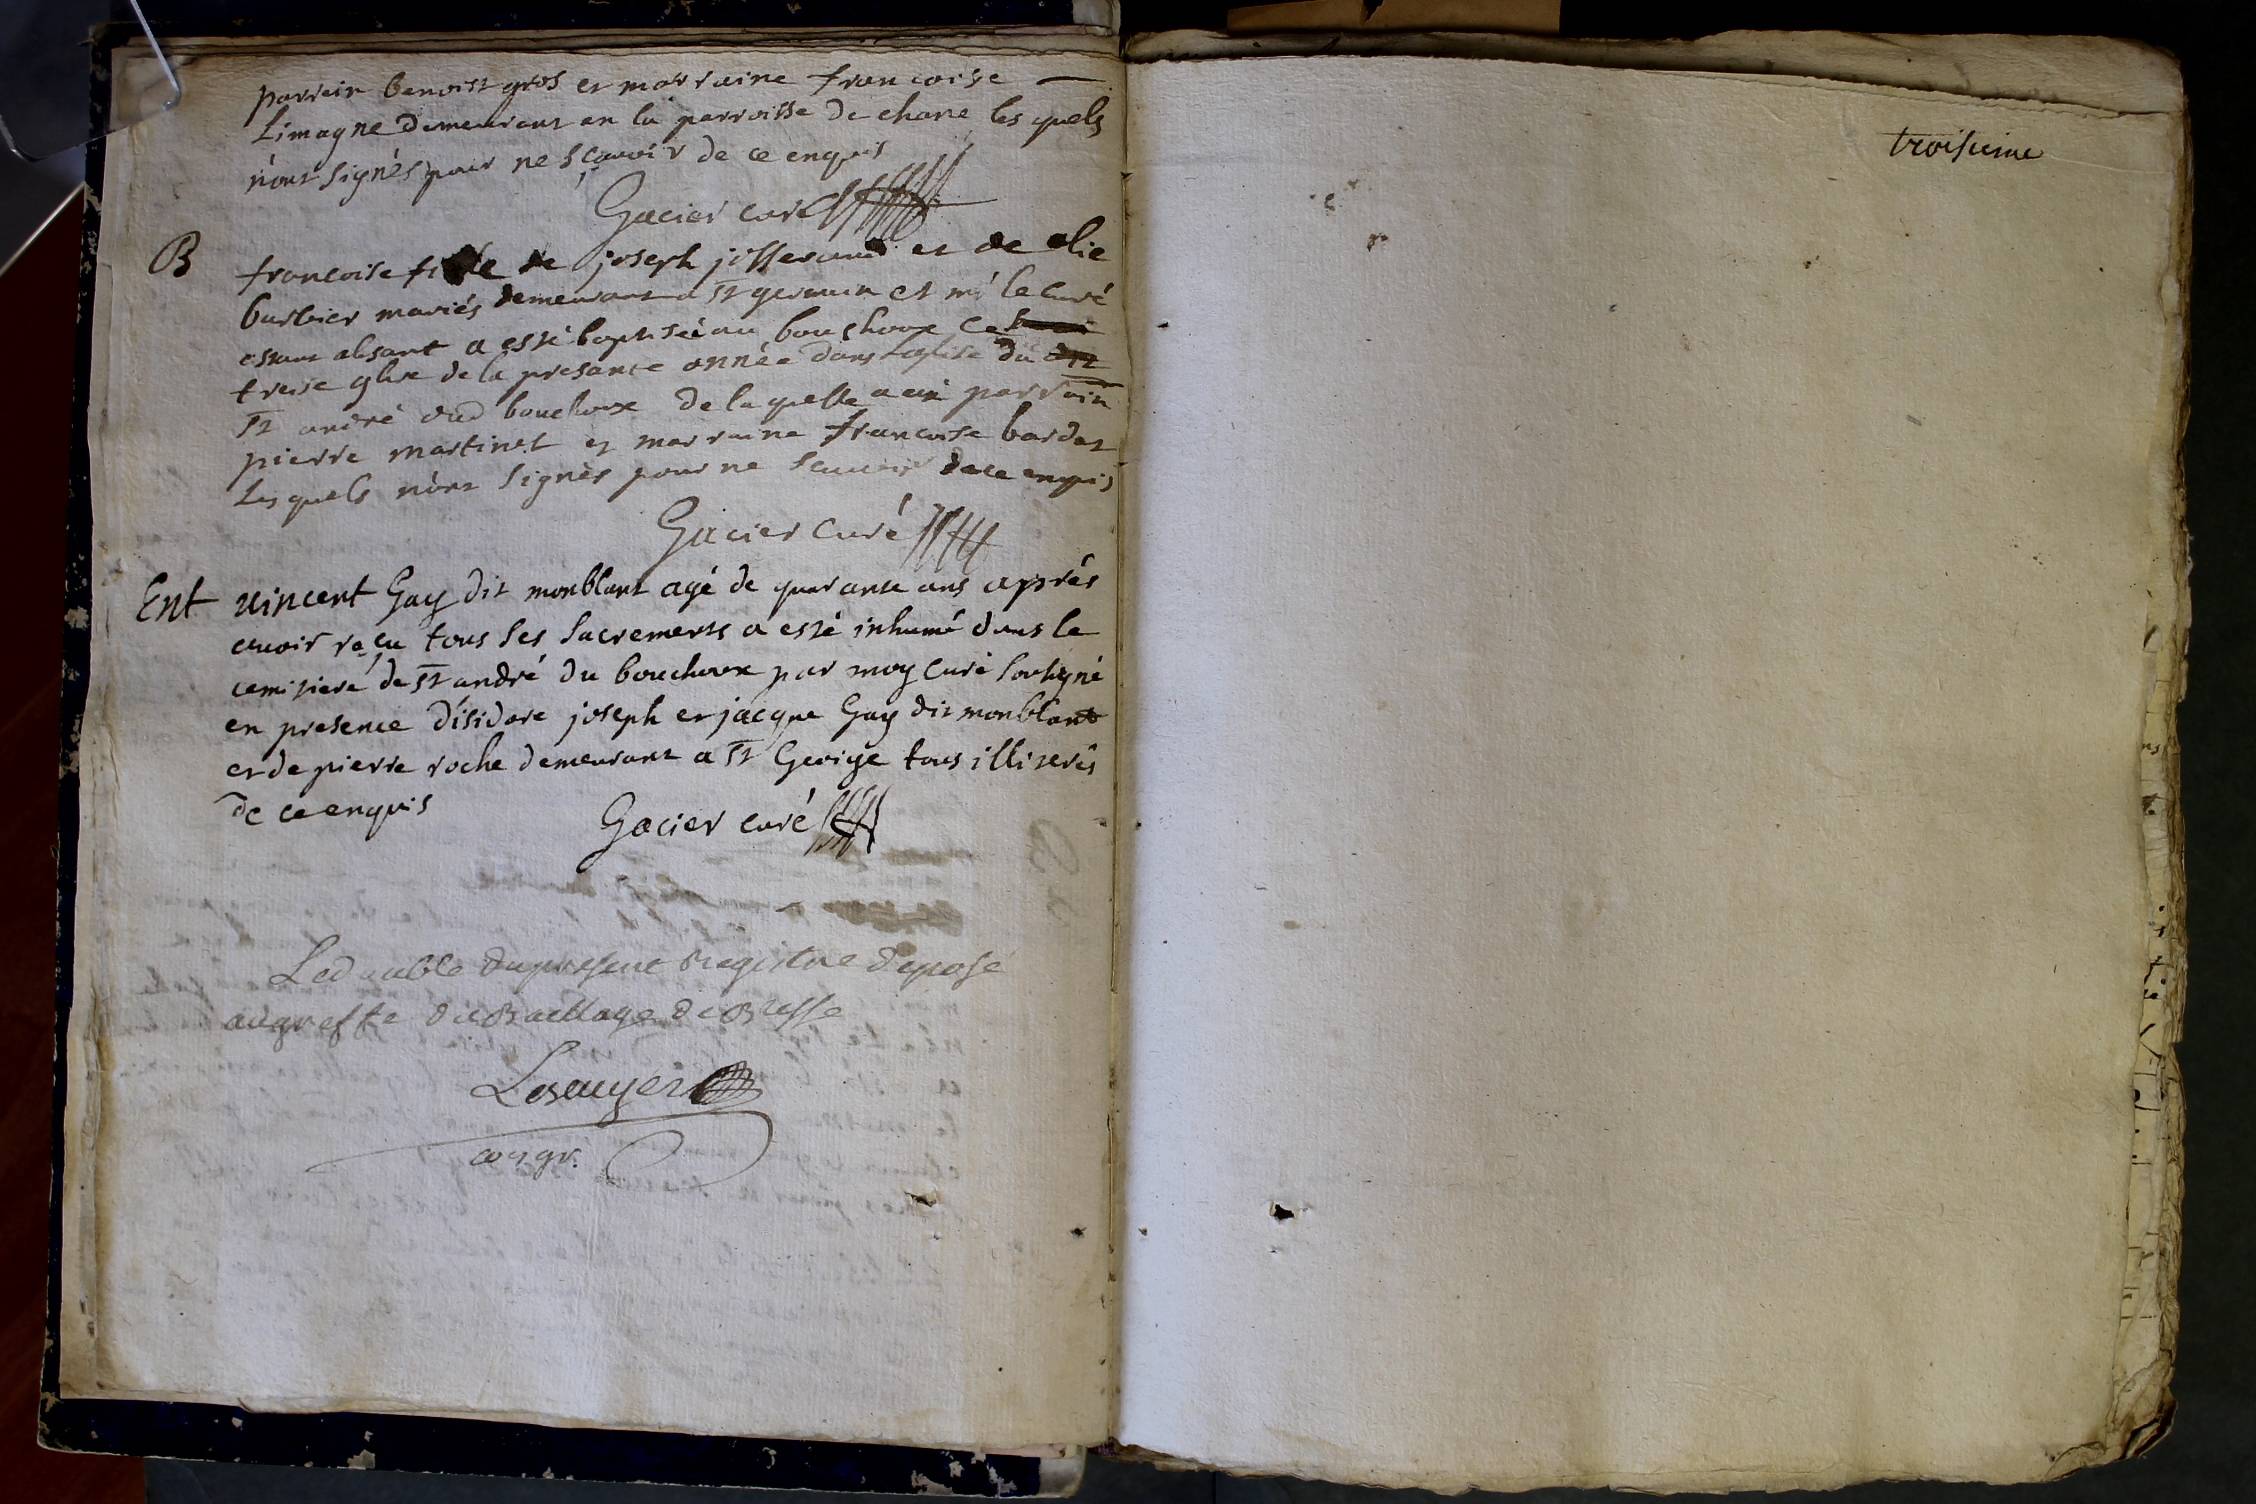 parrein benoist gros et marraine francoise
Limagne demeurant en la parroisse de chane les quels
n'ont signés pour ne sçavoir de ce enquis
Gacier curé
B francoise fille de joseph josserand et de elie
barbier mariés demeurant a St germain et mr le curé
estant absant a esté baptisée au bouchoux ce
treise 9bre de la presante année dans leglise du
St andré dud bouchoux de la quelle a eü parrain
pierre martinet et marraine francoise bardet
Les quels n'ont signés pour ne scauoir de ce enquis
Gacier Curé
Ent vincent Gay dit monblant agé de quarante ans aprés
auoir reçu tous ses sacrements a esté inhumé dans le
cemitiere de St andré du bouchoux par moy curé soussigné
en presence d'isidore joseph et jacque Gay dit monblant
et de pierre roche demeurant a St George tous illiterés
de ce enquis
Gacier curé
Le double du present Registre deposé
au greffe du Bailliage de Bresse
troisieme